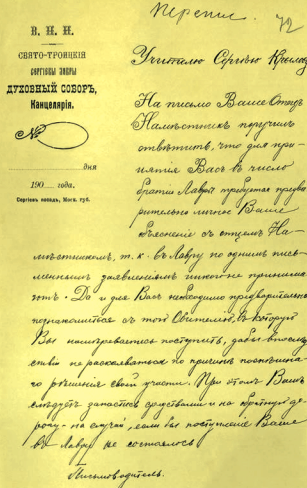 Перепис. 72
В. Н. И.
СВЯТО-ТРОИЦКІЯ
СЕРГІЕВЫ ЛАВРЫ
ДУХОВНЫЙ СОБОРЪ,
Канцелярія.
№
дня
190 года.
Сергіевъ посадъ, Моск. губ.
Учителю Сергѣю
На письмо Ваше Отецъ
Намѣстникъ поручилъ
отвѣтить, что для при-
нятія Васъ въ число
братіи Лавры требуется предва-
рительно личное Ваше
объясненіе съ отцемъ На-
мѣстникомъ, т. к. въ Лавру по однимъ пись-
меннымъ заявленіямъ никого не принима-
ютъ. Да и для Васъ необходимо предварительно
познакомиться съ той Обителью, въ которую
Вы намѣреваетесь поступить, дабы впослѣд-
ствіи не раскаяваться по причинѣ поспѣшна-
го рѣшенія своей участи. При этомъ Вамъ
слѣдуетъ запастись средствами и на обратную до-
рогу на случай, если бы поступленіе Ваше
въ Лавру не состоялось.
Письмоводитель